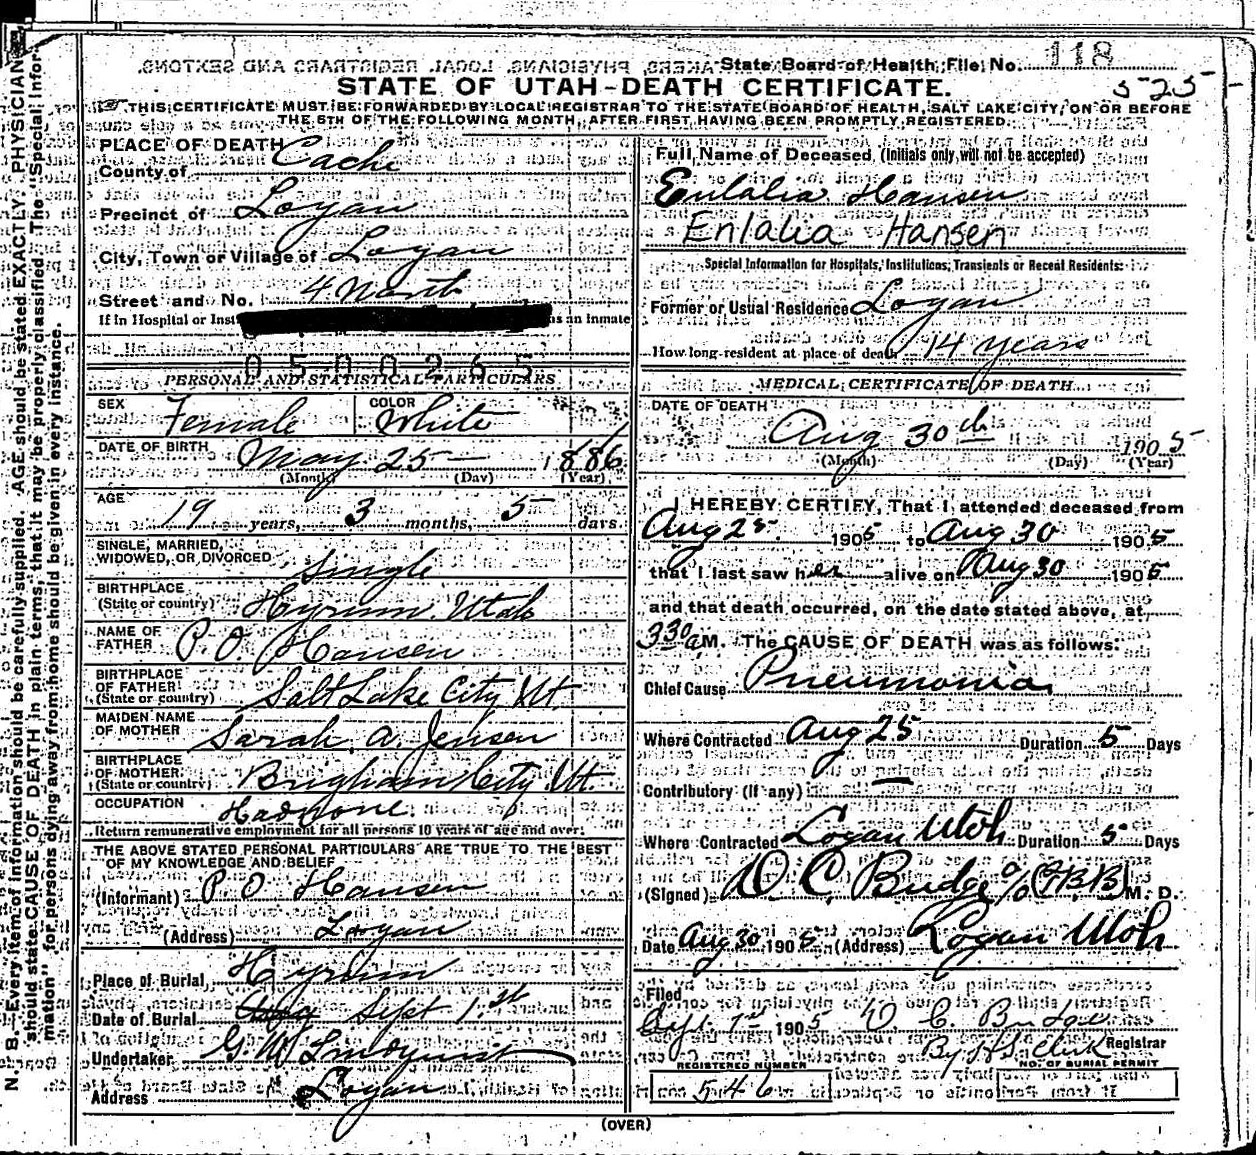 State Board of Health File No. 118
525
STATE OF UTAH-DEATH CERTIFICATE.
THIS CERTIFICATE MUST BE FORWARDED BY LOCAL REGISTRAR TO THE STATE BOARD OF HEALTH, SALT LAKE CITY, ON OR BEFORE
THE 5TH OF THE FOLLOWING MONTH, AFTER FIRST HAVING BEEN PROMPTLY REGISTERED.
PLACE OF DEATH
County of Cache
Precinct of Logan
City, Town or Village of Logan
Street and No. 4 North
If in Hospital or Inst as an inmate
0500265
PERSONAL AND STATISTICAL PARTICULARS
SEX Female COLOR White
DATE OF BIRTH May 25 1886
(Month) (Day) (Year)
AGE 19 years, 3 months, 5 days
SINGLE, MARRIED,
WIDOWED, OR DIVORCED Single
BIRTHPLACE
(State or country) Hyrum, Utah
NAME OF
FATHER P. O. Hansen
BIRTHPLACE
OF FATHER
(State or country) Salt Lake City Ut
MAIDEN NAME
OF MOTHER Sarah A. Jensen
BIRTHPLACE
OF MOTHER
(State or country) Brigham City Ut.
OCCUPATION Had none.
Return remunerative employment for all persons 10 years of age and over.
THE ABOVE STATED PERSONAL PARTICULARS ARE TRUE TO THE BEST
OF MY KNOWLEDGE AND BELIEF
(Informant) P. O. Hansen
(Address) Logan
Place of Burial, Hyrum
Date of Burial Sept 1st
Undertaker G. W. Lindquist
Address Logan
Full Name of Deceased (Initials only will not be accepted)
Eulalia Hansen
Enlalia Hansen
Special Information for Hospitals, Institutions, Transients or Recent Residents:
Former or Usual Residence Logan
How long resident at place of death 14 years
MEDICAL CERTIFICATE OF DEATH
DATE OF DEATH
Aug 30th 1905
(Month) (Day) (Year)
I HEREBY CERTIFY, That I attended deceased from
Aug 25 1905 to Aug 30 1905
that I last saw her alive on Aug 30 1905
and that death occurred, on the date stated above, at
3 30 a M. The CAUSE OF DEATH was as follows:
Chief Cause Pneumonia
Where Contracted Aug 25 Duration 5 Days
Contributory (If any) —
Where Contracted Logan Utah Duration 5 Days
(Signed) D C Budge % (F.B.B) M. D.
Date Aug 30 1905 (Address) Logan Utah
Filed
Sept. 1st 1905 D. C. Budge
Registrar
By H S. Clerk
REGISTERED NUMBER NO. OF BURIAL PERMIT
546
(OVER)
N. B.—Every item of information should be carefully supplied. AGE should be stated EXACTLY. PHYSICIAN
should state CAUSE OF DEATH in plain terms, that it may be properly classified. The "Special Infor
mation" for persons dying away from home should be given in every instance.